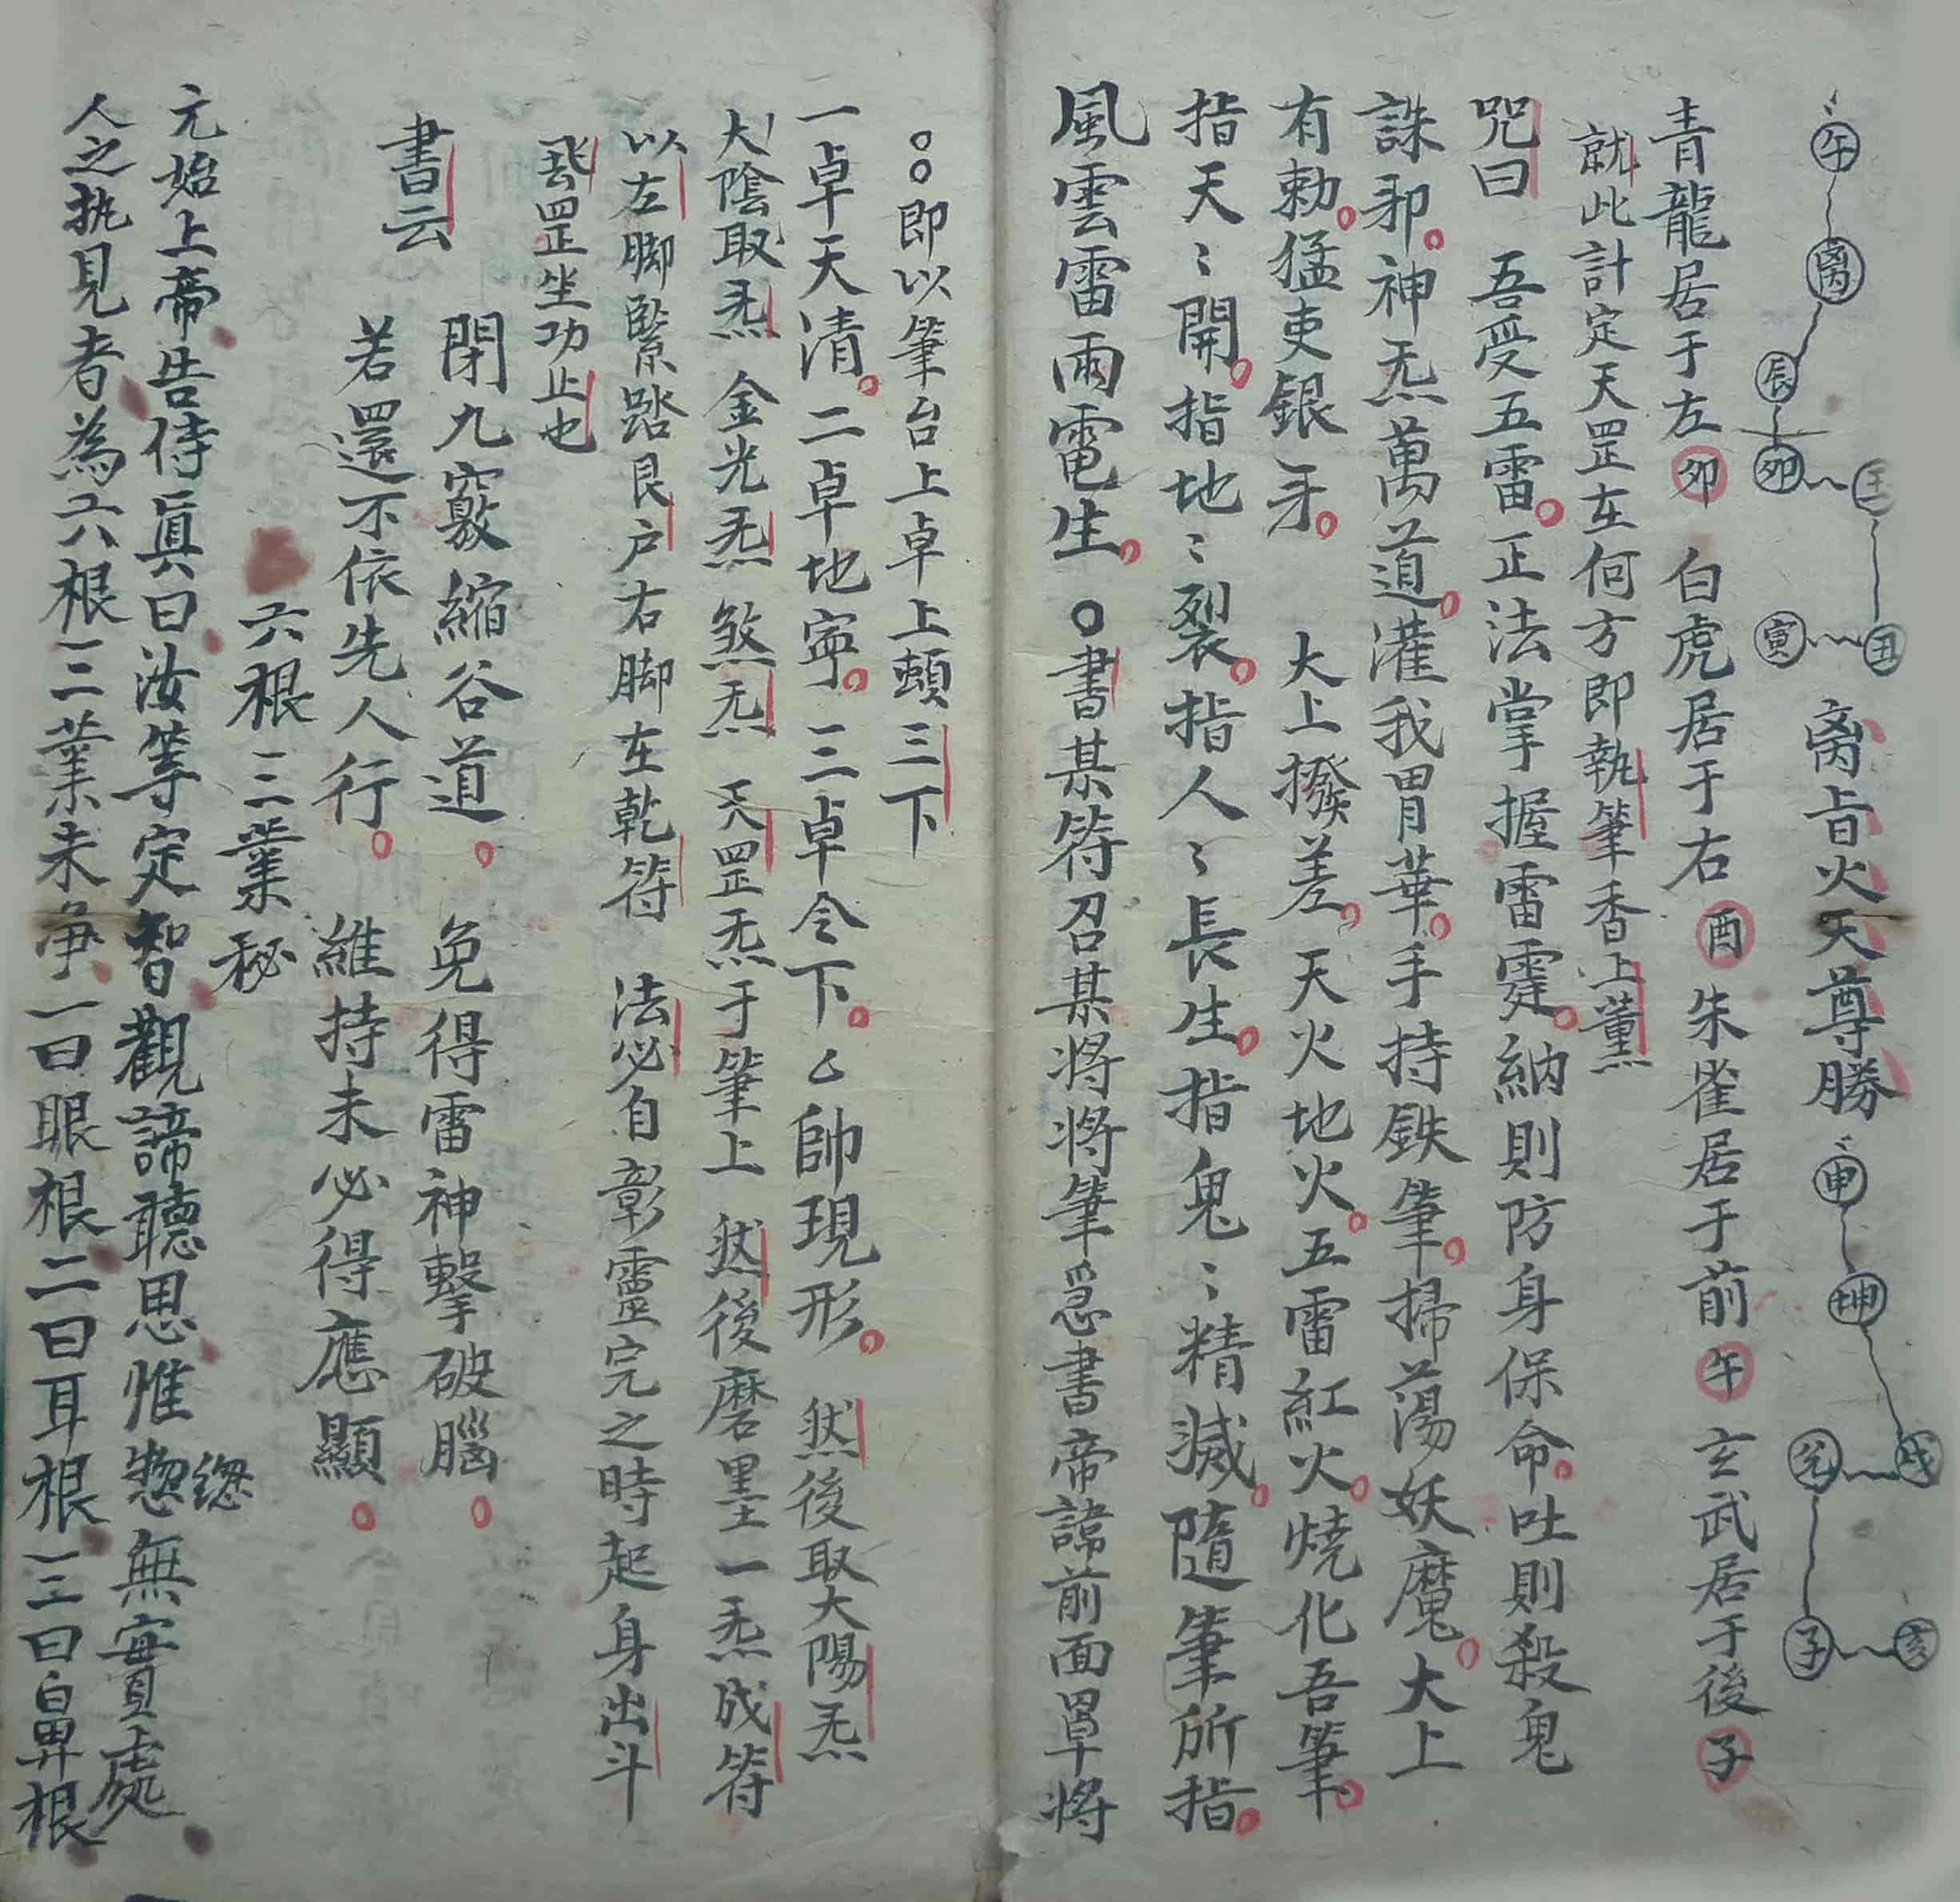 午 离 辰 卯 壬 丑 寅 离旨火天尊勝 申 坤 戌 兑 子 亥
青龍居于左卯 白虎居于右酉 朱雀居于前午 玄武居于後子
就此計定天罡在何方即執筆香上薰
咒曰 吾受五雷正法掌握雷霆納則防身保命吐則殺鬼
誅邪神炁萬道灌我胃華手持鉄筆掃蕩妖魔大上
有勅猛吏銀牙 大上撥差天火地火五雷紅火燒化吾筆
指天〻開指地〻裂指人〻長生指鬼〻精滅隨筆所指
風雲雷雨電生〇書某符召某将将筆忌書帝諱前面罩将
〇〇即以筆台上卓上頓三下
一卓天清二卓地寧三卓令下乙帥現形 然後取大陽炁
大陰取炁 金光炁 煞炁 天罡炁于筆上 然後磨墨一炁成符
以左脚緊踏艮户右脚在乾符 法必自彰靈完之時起身出斗
飛罡坐功止也
書云
閉九竅縮谷道 免得雷神擊破腦
若還不依先人行 維持未必得應顯
六根三業秘
元始上帝告侍眞曰汝等定智觀諦聽思惟愗緫無實處
人之执見者為六根三業未争一曰眼根二曰耳根三曰鼻根